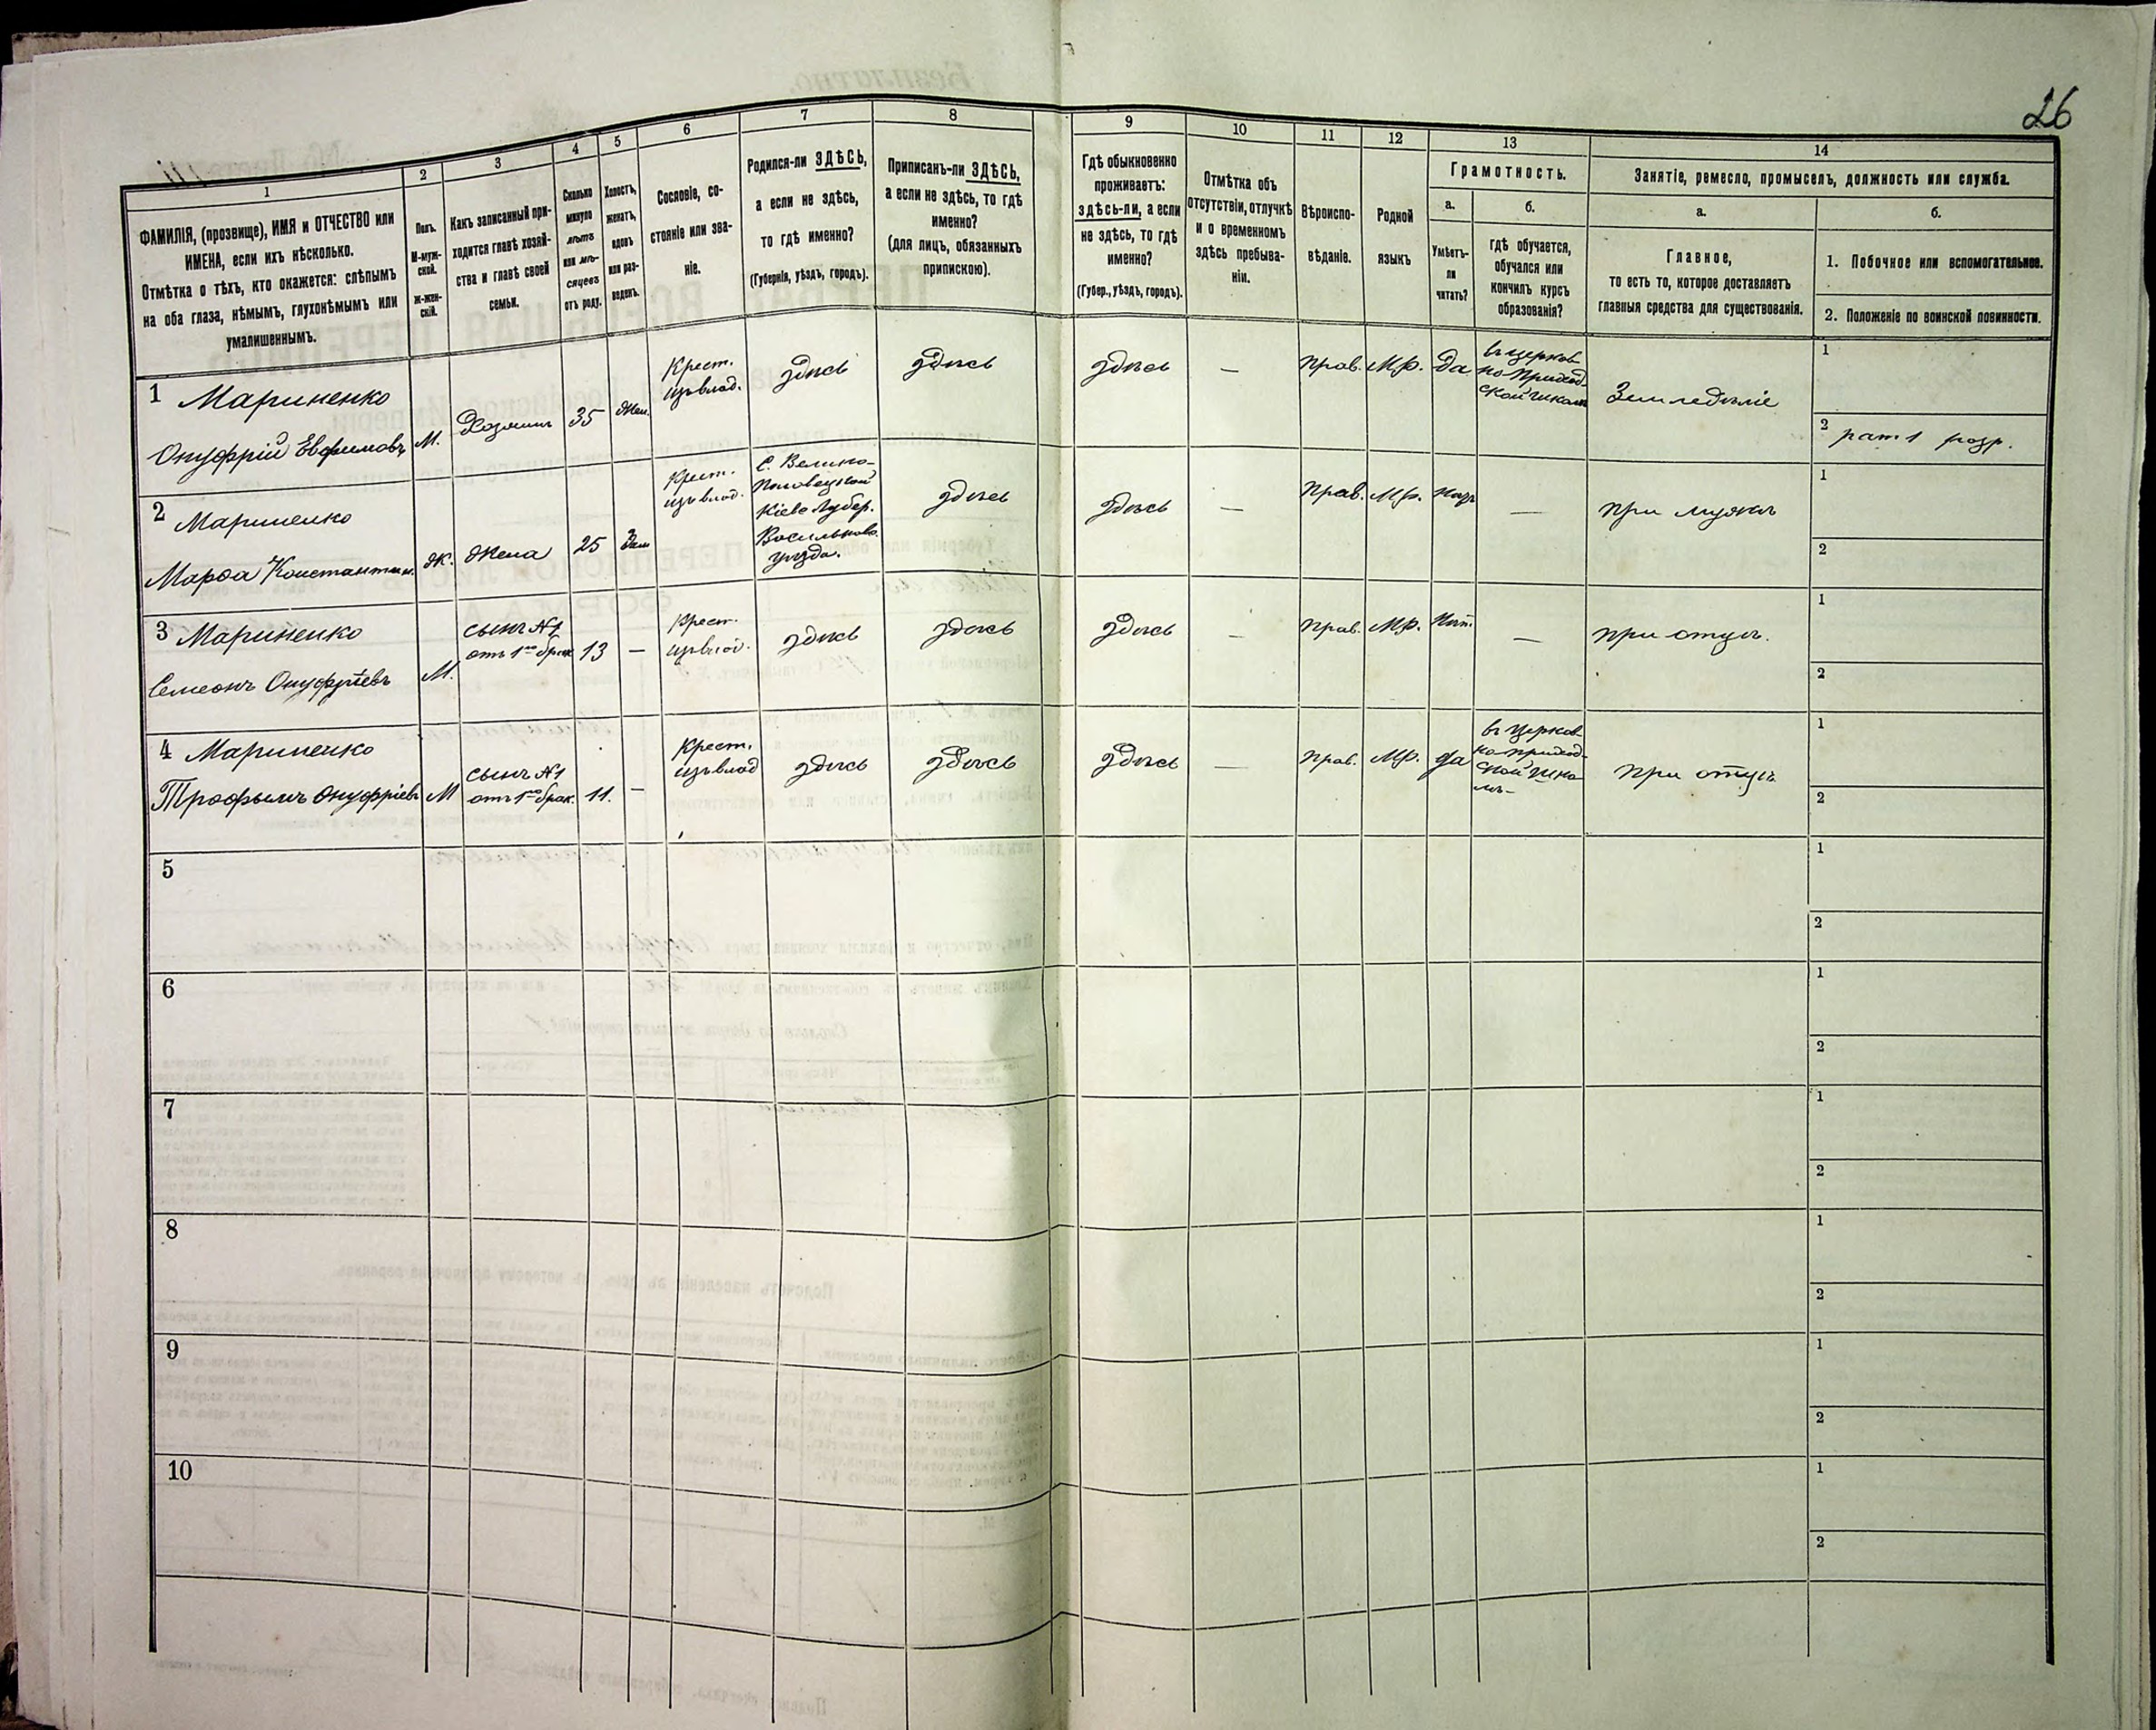 26
1
2
3
4
5
6
7
8
9
10
11
12
13
14
ФАМИЛІЯ, (прозвище), ИМЯ и ОТЧЕСТВО или
ИМЕНА, если ихъ нѣсколько.
Отмѣтка о тѣхъ, кто окажется: слѣпымъ
на оба глаза, нѣмымъ, глухонѣмымъ или
умалишеннымъ.
Полъ.
М-муж-
ской.
Ж-жен-
скій.
Какъ записанный при-
ходится главѣ хозяй-
ства и главѣ своей
семьи.
Сколько
минуло
лѣтъ
или мѣ-
сяцевъ
отъ роду.
Холостъ,
женатъ,
вдовъ
или раз-
веденъ.
Сословіе, со-
стояніе или зва-
ніе.
Родился-ли ЗДѢСЬ,
а если не здѣсь,
то гдѣ именно?
(Губернія, уѣздъ, городъ).
Приписанъ-ли ЗДѢСЬ,
а если не здѣсь, то гдѣ
именно?
(для лицъ, обязанныхъ
припискою).
Гдѣ обыкновенно
проживаетъ:
здѣсь-ли, а если
не здѣсь, то гдѣ
именно?
(Губер., уѣздъ, городъ).
Отмѣтка объ
отсутствіи, отлучкѣ
и о временномъ
здѣсь пребыва-
ніи.
Вѣроиспо-
вѣданіе.
Родной
языкъ
Грамотность.
а.
Умѣетъ-
ли
читать?
б.
гдѣ обучается,
обучался или
кончилъ курсъ
образованія?
Занятіе, ремесло, промыселъ, должность или служба.
а.
Главное,
то есть то, которое доставляетъ
главныя средства для существованія.
б.
1. Побочное или вспомогательное.
2. Положеніе по воинской повинности.
1 Мариненко
Онуфрій Евфимовъ
М.
Хозяинъ
35
Жен.
Крест.
изъ влад.
здѣсь
здѣсь
здѣсь
—
Прав.
М.р.
Да
въ церков-
но Приход-
ской школѣ
Земледѣліе
1
2 рат. 1 разр.
2 Мариненко
Марфа Константин.
Ж.
Жена
25
Зам
Крест.
изъ влад.
С. Велико-
Половецкой
Кіевс Губер.
Васильковс.
уѣзда.
здѣсь
здѣсь
—
Прав.
М.р.
—
при мужѣ
1
2
3 Мариненко
Семеонъ Онуфріевъ
М.
сынъ №1
отъ 1го брак
13
—
Крест.
изъ влад.
здѣсь
здѣсь
здѣсь
—
Прав.
М.р.
—
при отцѣ.
1
2
4 Мариненко
Трофымъ Онуфріевъ
М
сынъ №1
отъ 1го брак.
11.
—
Крест.
изъ влад
здѣсь
здѣсь
здѣсь
—
Прав.
М.р.
да
въ Церков-
но приход-
ской шко-
лѣ-
при отцѣ
1
2
5
1
2
6
1
2
7
1
2
8
1
2
9
1
2
10
1
2